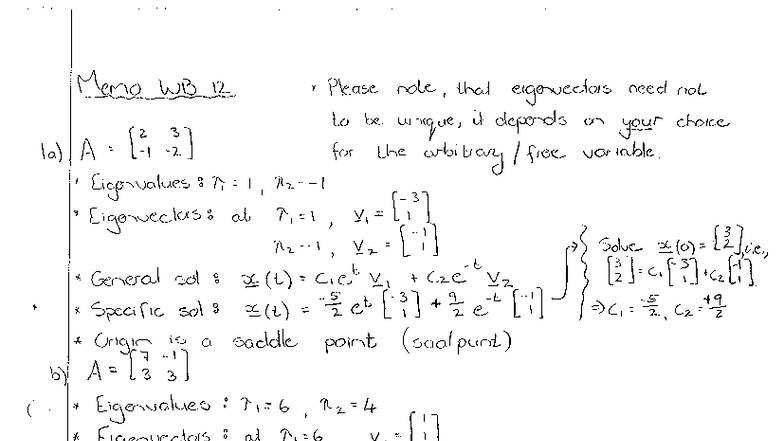 Memo WB 12
* Please note, that eigenvectors need not
to be unique, it depends on your choice
for the arbitrary/free variable.
1a) A = [2 3; -1 -2]
* Eigenvalues: λ₁ = 1, λ₂ = -1
* Eigenvectors: at λ₁ = 1, v₁ = [-3; 1]
λ₂ = -1, v₂ = [-1; 1]
* General sol: x(t) = c₁eᵗ v₁ + c₂e⁻ᵗ v₂
* Specific sol: x(t) = -5/2 eᵗ [-3; 1] + 9/2 e⁻ᵗ [-1; 1]
Solve x(0) = [3; 2], i.e.,
[3; 2] = c₁ [-3; 1] + c₂ [-1; 1]
⇒ c₁ = -5/2, c₂ = +9/2
* Origin is a saddle point (saalpunt)
b) A = [7 -1; 3 3]
* Eigenvalues: λ₁ = 6, λ₂ = 4
* Eigenvectors: at λ₁ = 6 v₁ = [1; 1]